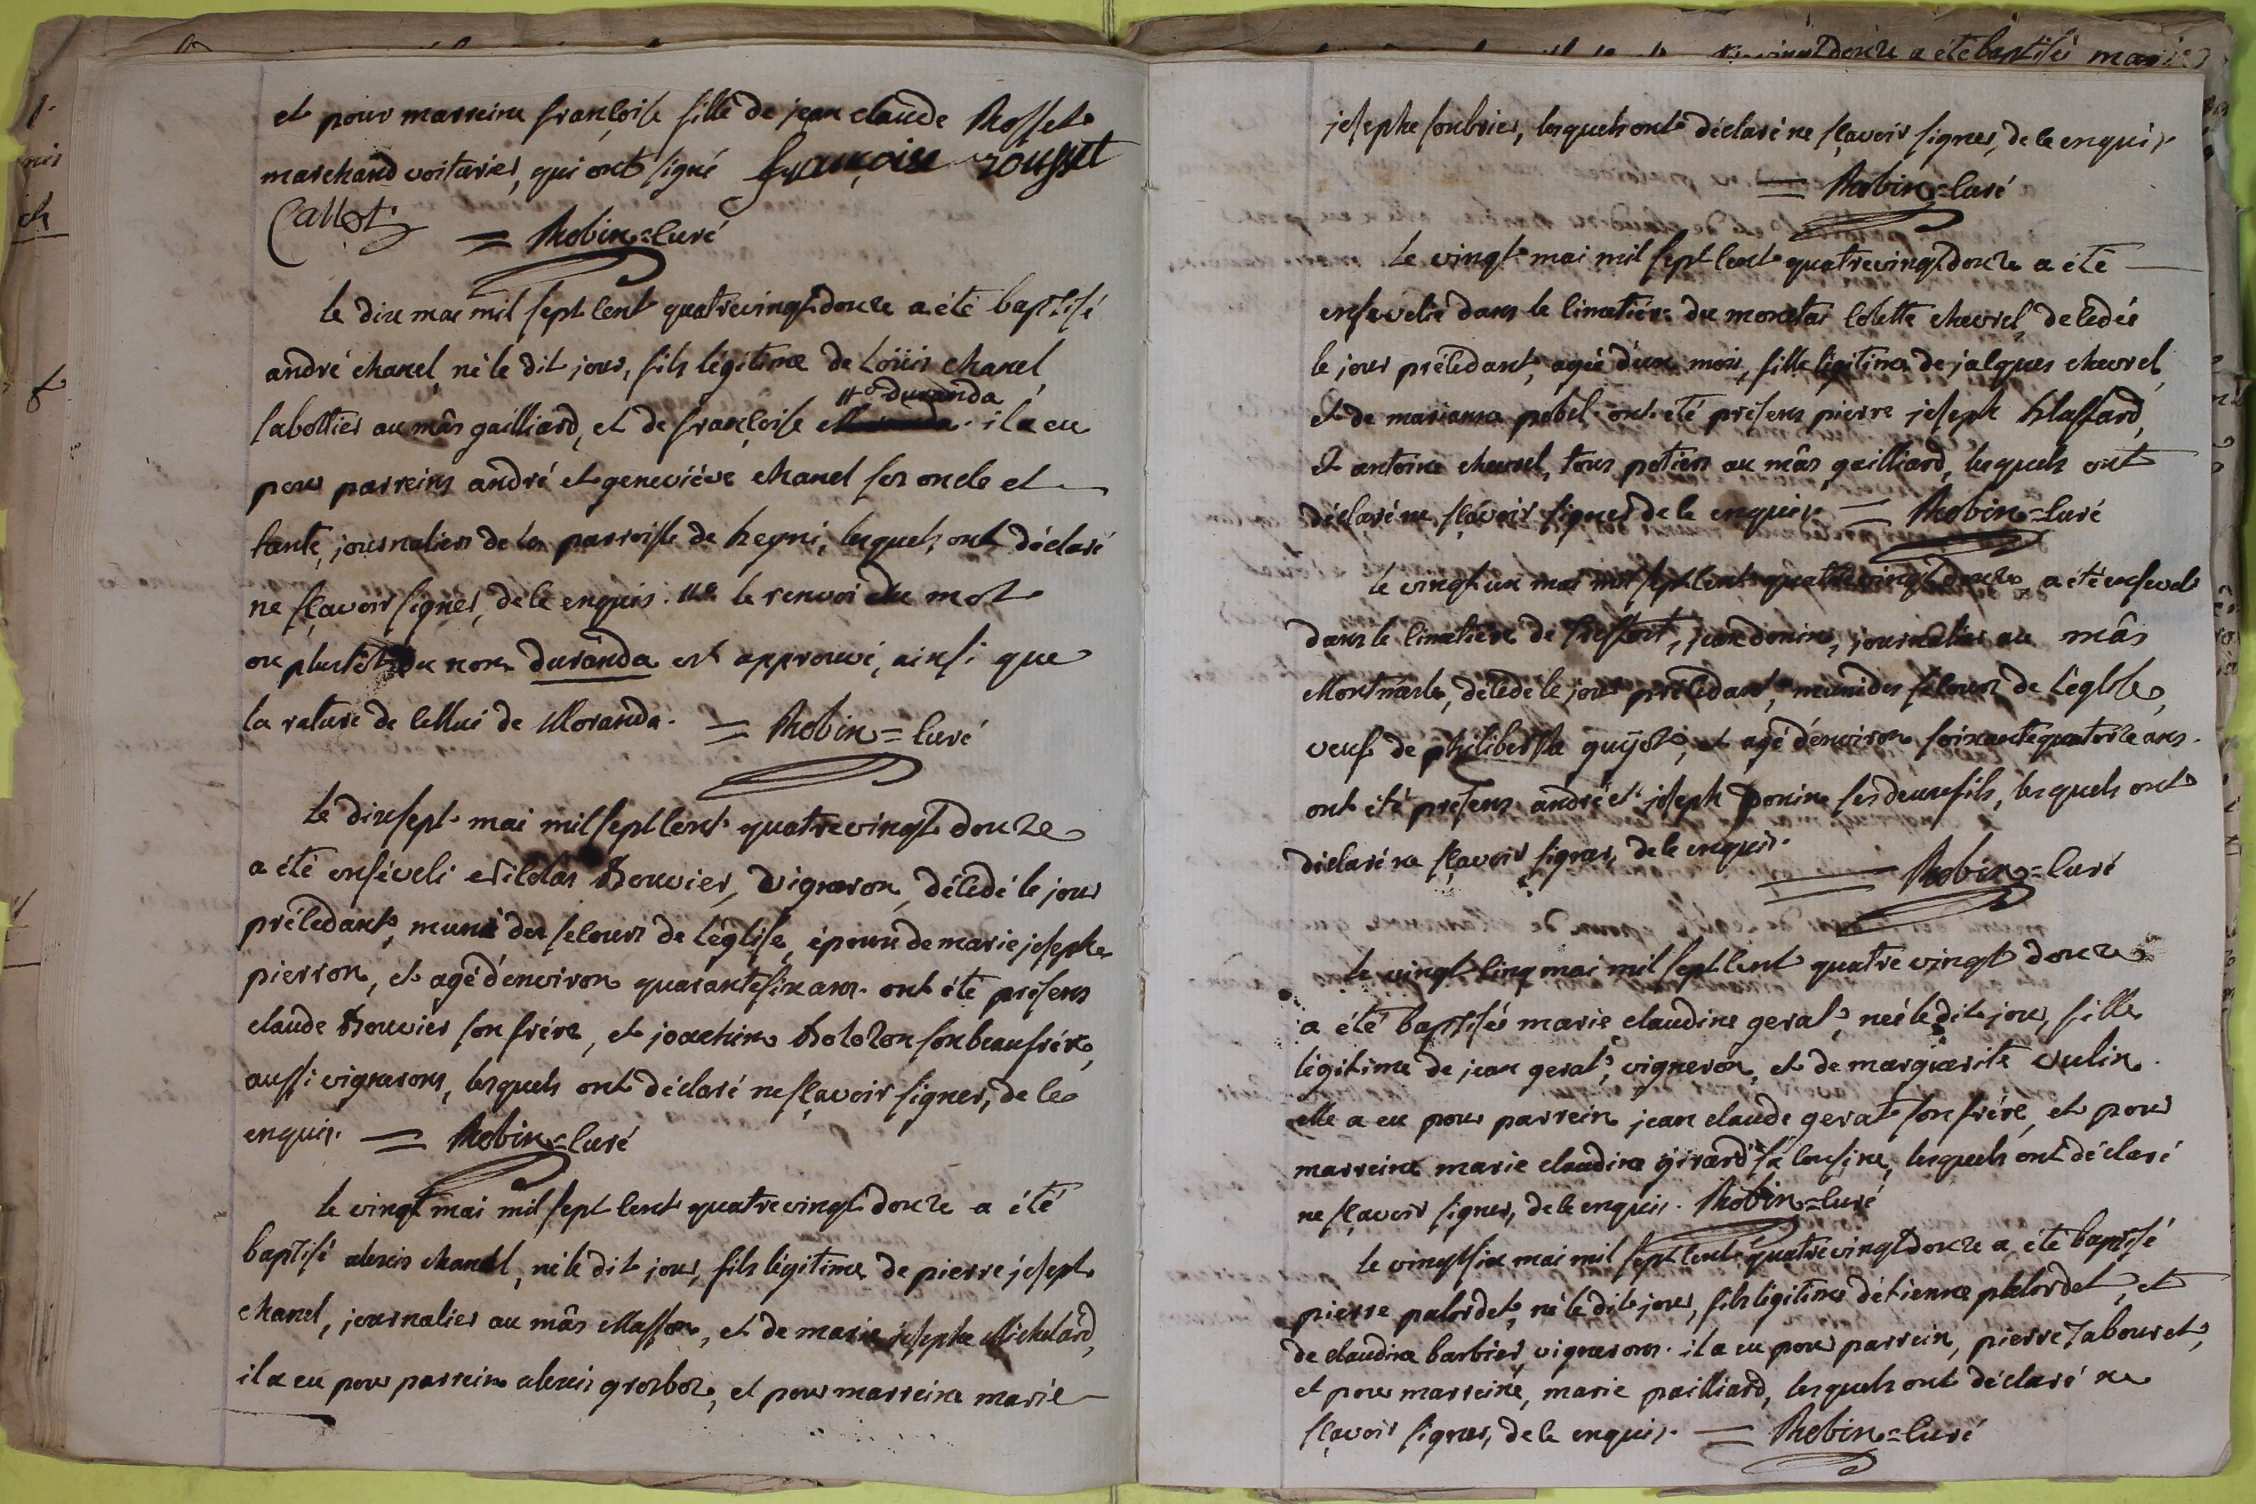 et pour marreine françoise fille de jean claude Rosset
marchand voiturier, qui ont signé françoise rousset
Callet = Robin=curé
le dix mai mil sept cent quatrevingt douze a été baptisé
andré chanel, né le dit jour, fils légitime de Loüis chanel,
# duranda
sabottier au mâs gailliard, et de françoise Moranda. il a eu
pour parreins andré et geneviéve chanel son oncle et
tante, journaliers de la parroisse de hegni, lesquels ont déclaré
ne sçavoir signer, de ce enquis. # le renvoi du mot
ou plustôt du nom duranda est approuvé, ainsi que
la rature de cellui de Moranda. = Robin=curé
le dixsept mai mil sept cent quatrevingt douze
a été enséveli Nicolas Bouvier, vigneron, décedé le jour
précedant, muni des secours de l'église, époux de marie josephe
pierron, et agé d'environ quarantesix ans. ont été présens
claude Bouvier son frére, et joachim Bolozon son beaufrére,
aussi vignerons, lesquels ont déclaré ne sçavoir signer, de ce
enquis. = Robin=curé
le vingt mai mil sept cent quatrevingt douze a été
baptisé alexis chanel, né le dit jour, fils légitime de pierre joseph
chanel, journalier au mâs Masson, et de marie josephe Michelard,
il a eu pour parrein alexis grosboz, et pour marreine marie
josephe soubrier, lesquels ont déclaré ne sçavoir signer, de ce enquis.
= Robin=curé
le vingt mai mil sept cent quatrevingt douze a été
ensevelie dans le cimetiére du monetai colette chevrel, décedée
le jour précedant, agée d'un mois, fille légitime de jacques chevrel,
et de marianne pobel. ont été présens pierre joseph blaffard,
et antoine chevrel, tous potiers au mâs gailliard, lesquels ont
déclaré ne sçavoir signer de ce enquis. = Robin=curé
le vingt un mai mil sept cent quatrevingt douze a été enseveli
dans le cimetiére de treffort, jean donin, journalier au mâs
Montmerle, décedé le jour précedant, muni des secours de l'église,
veuf de philiberthe guÿot, et agé d'environ soixantequatorze ans.
ont été présens andré et joseph Donin ses deux fils, lesquels ont
déclaré ne sçavoir signer, de ce enquis.
= Robin=curé
le vingt cinq mai mil sept cent quatre vingt douze
a été baptisée marie claudine gerat, née le dit jour, fille
légitime de jean gerat, vigneron, et de marguerite vulin.
elle a eu pour parrein jean claude gerat son frére, et pour
marreine marie claudine girard sa cousine, lesquels ont déclaré
ne sçavoir signer, de ce enquis. Robin=curé
le vingtsix mai mil sept cent quatrevingt douze a été baptisé
pierre palordet, né le dit jour, fils légitime d'étienne palordet, et
de claudine barbier, vignerons. il a eu pour parrein, pierre Tabouret,
et pour marreine, marie pailliard, lesquels ont déclaré ne
sçavoir signer, de ce enquis. = Robin=curé